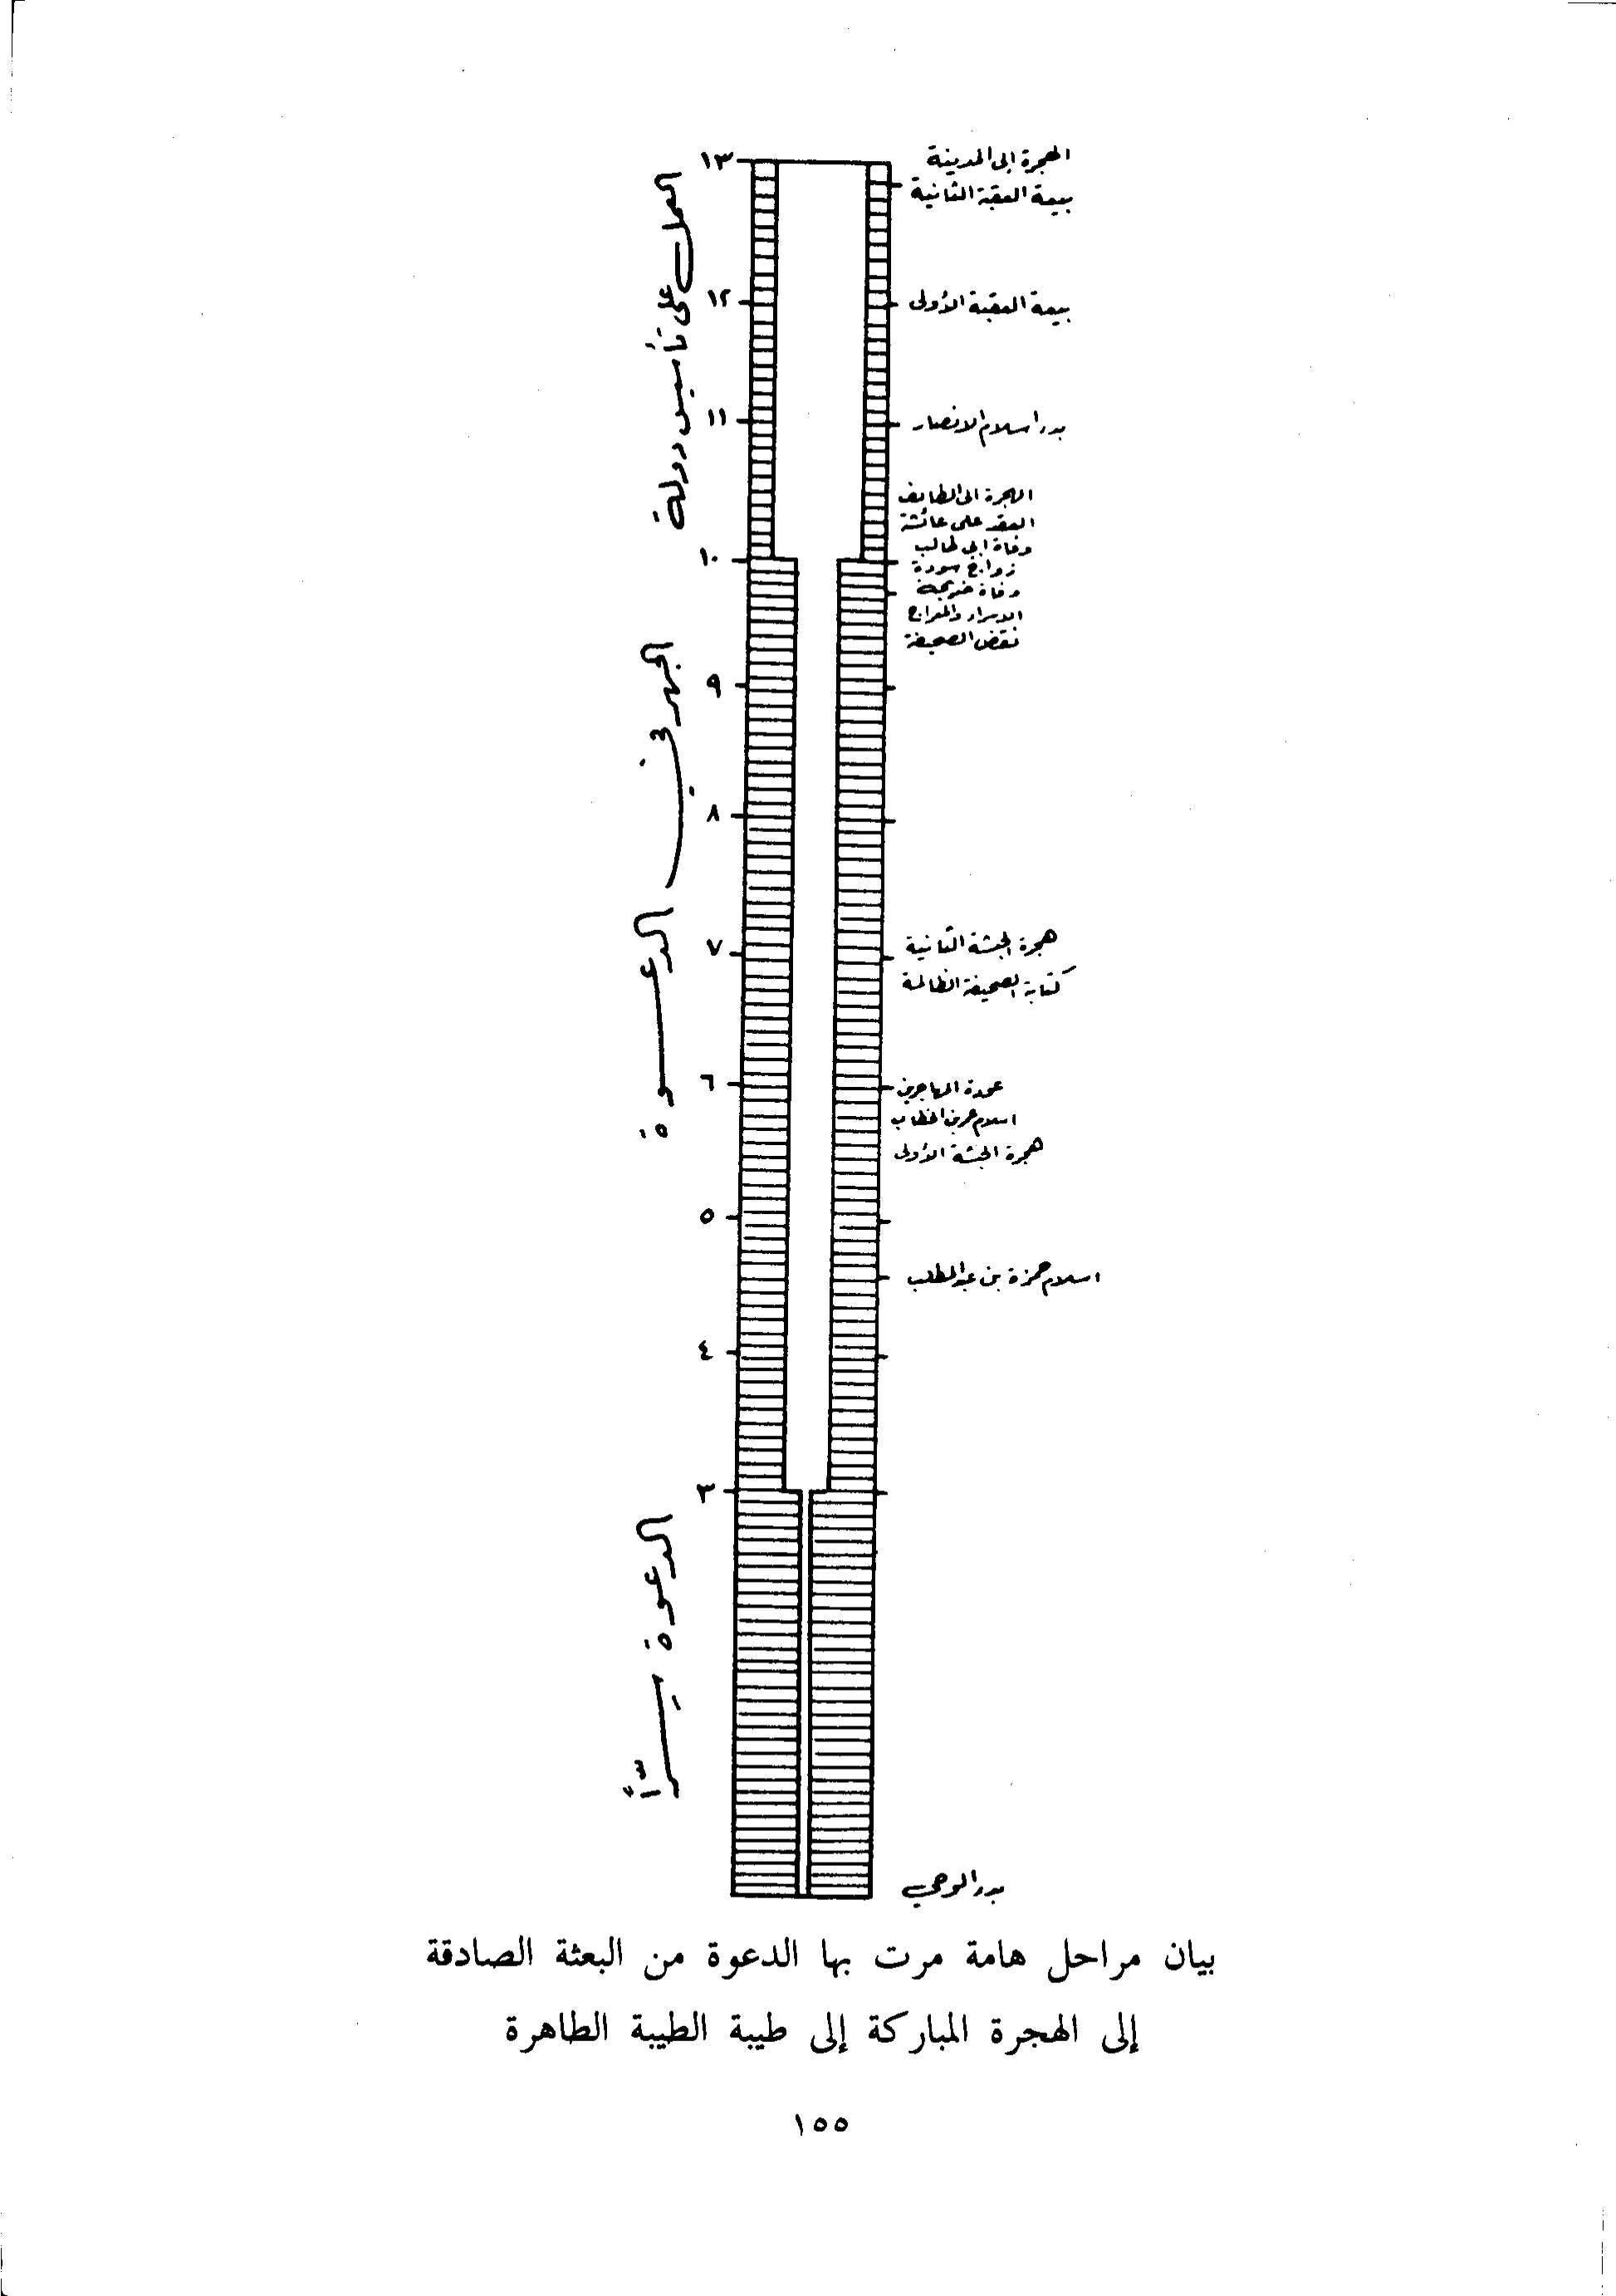 الهجرة إلى المدينة
١٣
بيعة العقبة الثانية
بيعة العقبة الأولى
١٢
بدء اسلام الانصار
١١
الهجرة الى الطايف
العقد على عائشة
وفاة ابي طالب
١٠
زواج سودة
وفاة خديجة
الاسراء والمعراج
نقض الصحيفة
٩
٨
هجرة الحبشة الثانية
٧
كتابة الصحيفة الظالمة
عودة المهاجرين
٦
اسلام عمر بن الخطاب
هجرة الحبشة الأولى
٥
اسلام حمزة بن عبد المطلب
٤
٣
بدء الوحي
العمل على تأسيس دولة
الجهر في الدعوة
الدعوة سرّاً
بيان مراحل هامة مرت بها الدعوة من البعثة الصادقة
إلى الهجرة المباركة إلى طيبة الطيبة الطاهرة
١٥٥